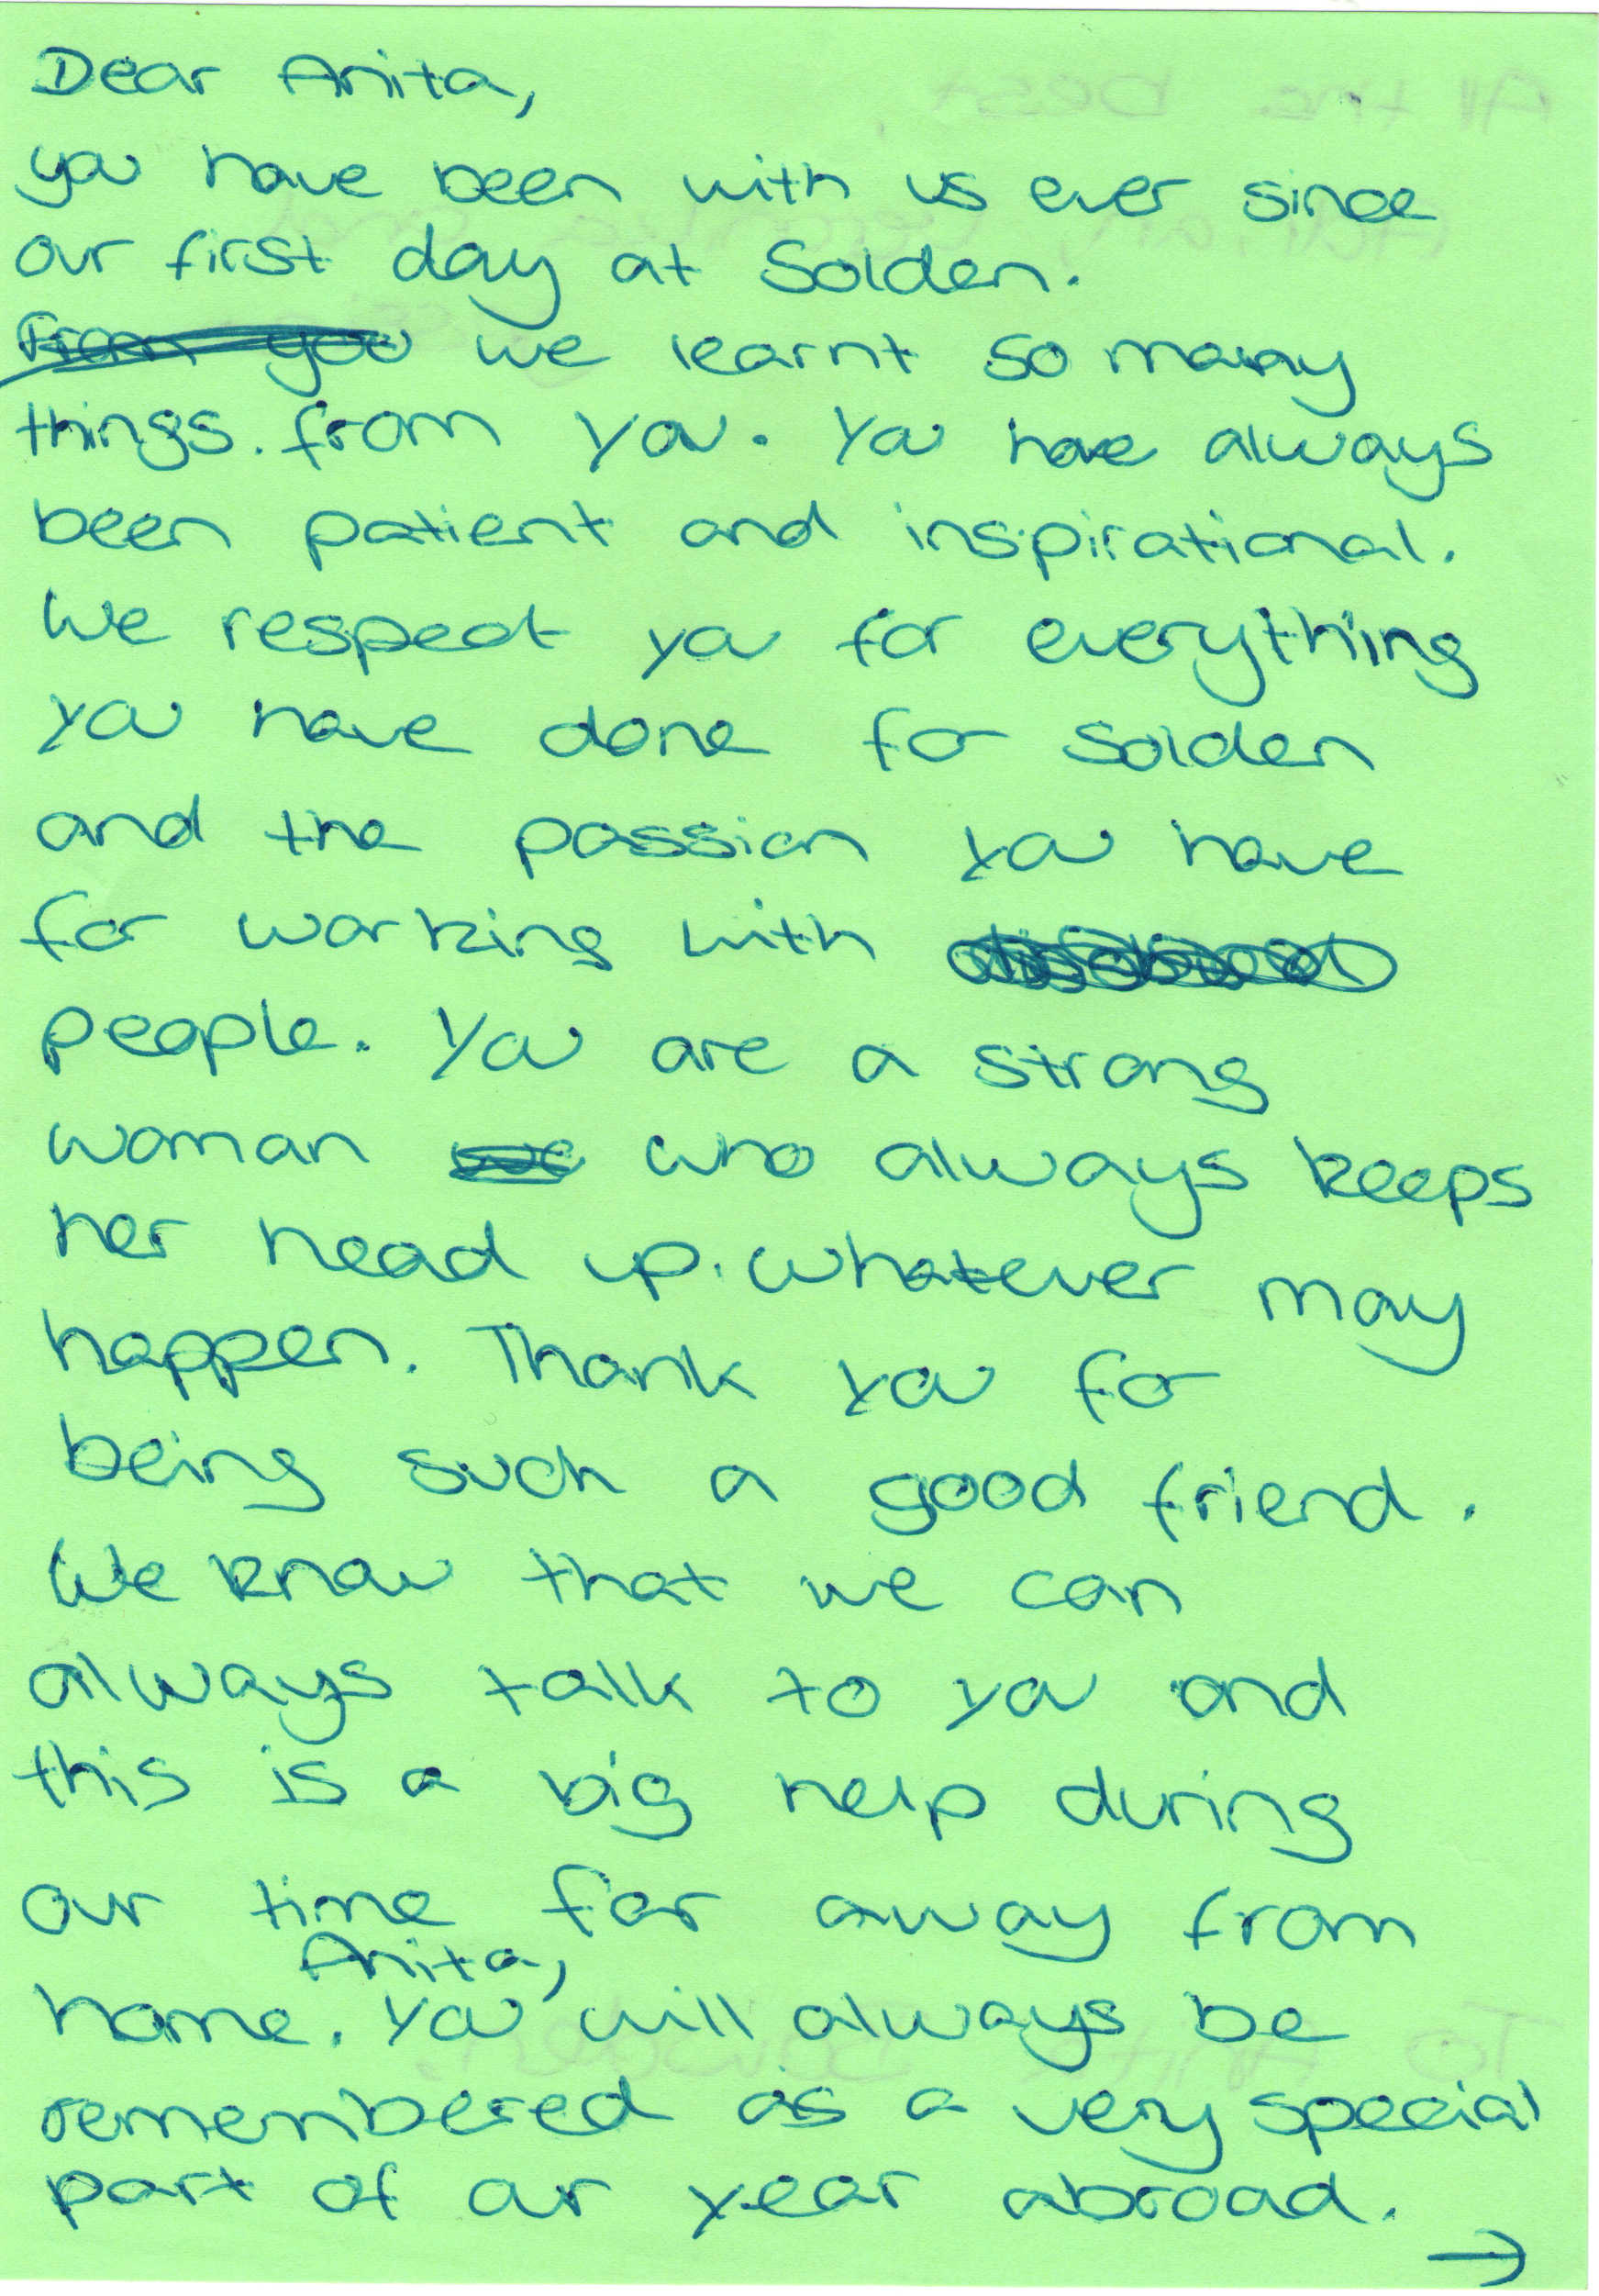 Dear Anita,
you have been with us ever since
our first day at Solden.
From you we learnt so many
things. from you. You have always
been patient and inspirational.
We respect you for everything
you have done for Solden
and the passion you have
for working with
people. You are a strong
woman who always keeps
her head up. whatever may
happen. Thank you for
being such a good friend.
We know that we can
always talk to you and
this is a big help during
our time far away from
Anita,
home. You will always be
remembered as a very special
part of our year abroad.
→